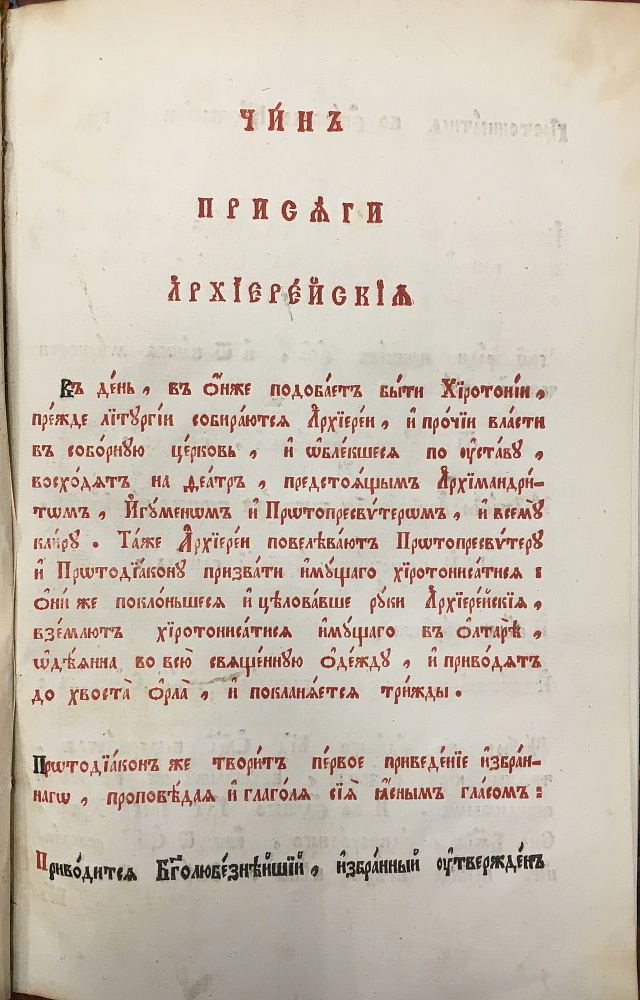 ЧИ́НЪ
ПРИСѦ́ГИ
А҆РХІЕРЕ́ЙСКІѦ
Въ де́нь, въ ѻ҆́ньже подоба́етъ бы́ти Хїротоні́и,
пре́жде лїтꙋргі́и собира́ются А҆рхїере́и, и҆ про́чїи вла́сти
въ собо́рную це́рковь, и҆ ѡ҆бле́кшеся по ᲂу҆ста́вꙋ,
восхо́дятъ на ѳеа́тръ, предстоѧ́щымъ А҆рхїмандрі́-
тѡмъ, И҆гꙋ́менѡмъ и҆ Прѡтопресвѵ́терѡмъ, и҆ всемꙋ̀
кли́рꙋ. Та́же А҆рхїере́и повелѣва́ютъ Прѡтопресвѵ́терꙋ
и҆ Прѡтодїа́конꙋ призва́ти и҆мꙋ́щаго хїротониса́тися:
ѻ҆ни́ же покло́ньшеся и҆ цѣлова́вше рꙋ́ки А҆рхїере́йскїя,
взе́млютъ хїротониса́тися и҆мꙋ́щаго въ ѻ҆лтарѣ̀,
ѡ҆дѣ́янна во всю̀ свяще́ннꙋю ѻ҆де́ждꙋ, и҆ приво́дятъ
до хвоста̀ ѻ҆рла̀, и҆ покланя́ется три́жды.
Прѡтодїа́конъ же твори́тъ пе́рвое приведе́нїе и҆збра́н-
нагѡ, проповѣ́дая и҆ глаго́ля сїѧ̀ ꙗ҆́снымъ гла́сомъ:
Приво́дится Бг҃олюбе́знѣйшїй, и҆збра́нный ᲂу҆твержде́нъ